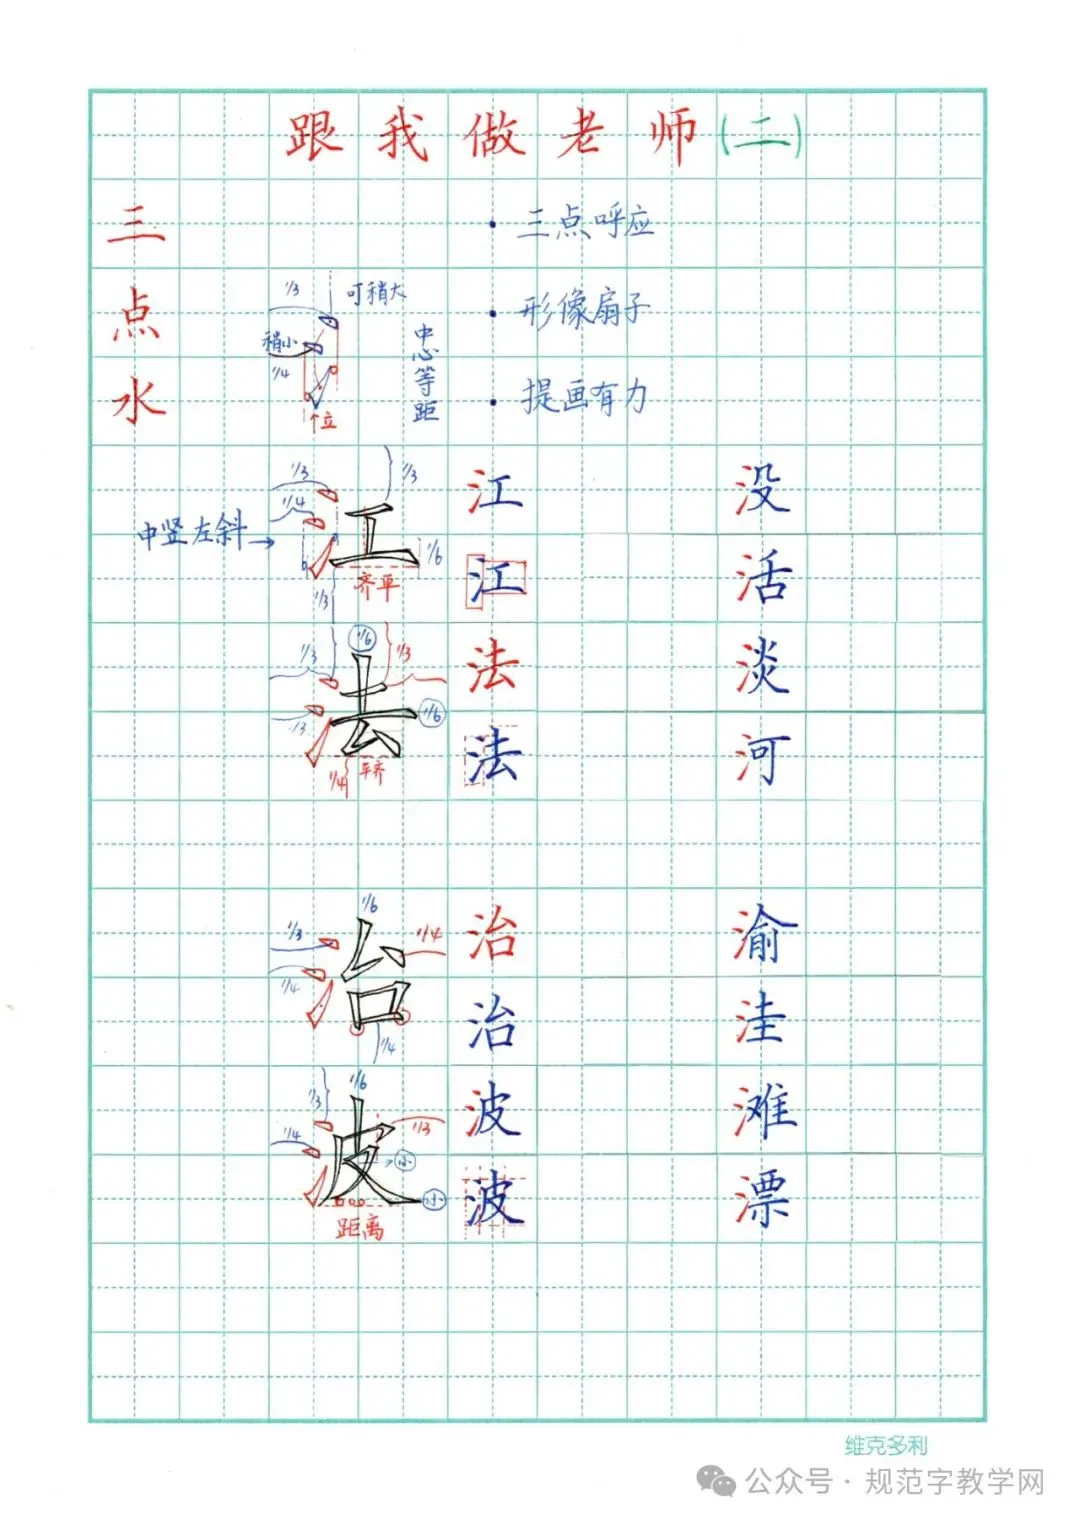 跟我做老师(二)
三点水
·三点呼应
·形像扇子
·提画有力
1/3
可稍大
稍小
1/4
中心等距
个位
1/3
1/3
1/4
中竖左斜→
1/6
齐平
1/3
江
江
没
活
1/6
1/3
1/3
1/6
1/3
1/4
平齐
法
法
淡
河
1/6
1/3
1/4
1/4
1/4
治
治
渝
洼
1/6
1/3
1/4
1/3
小
小
距离
波
波
滩
漂
维克多利
公众号·规范字教学网